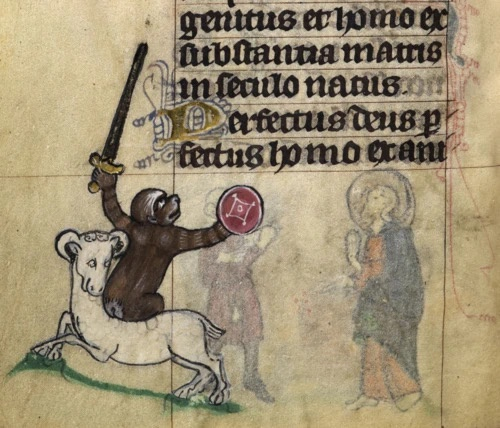 genitus et homo ex
substantia matris
in seculo natus.
Perfectus deus ꝑ
fectus homo ex ani